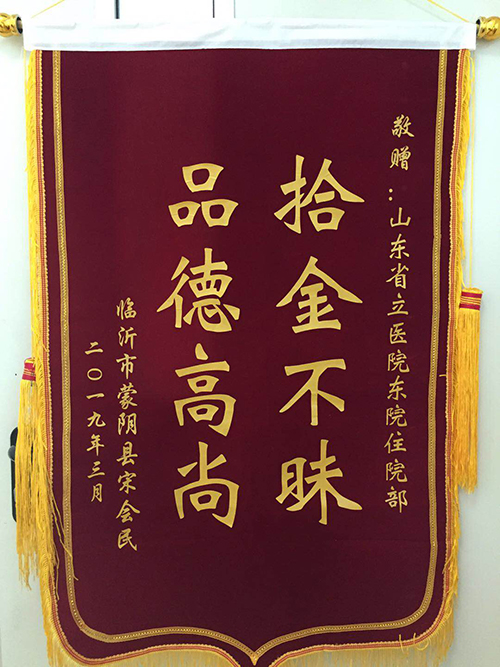 敬赠：山东省立医院东院住院部
拾金不昧
品德高尚
临沂市蒙阴县宋会民
二〇一九年三月